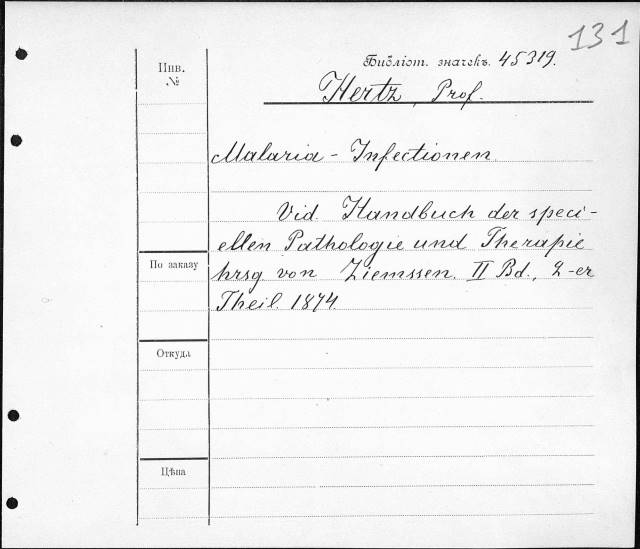 131
Инв.
№
Библіот. значекъ. 45319.
Hertz, Prof.
Malaria - Infectionen.
Vid. Handbuch der speci-
ellen Pathologie und Therapie
По заказу
hrsg von Ziemssen. II Bd., 2-er
Theil. 1874.
Откуда
Цѣна